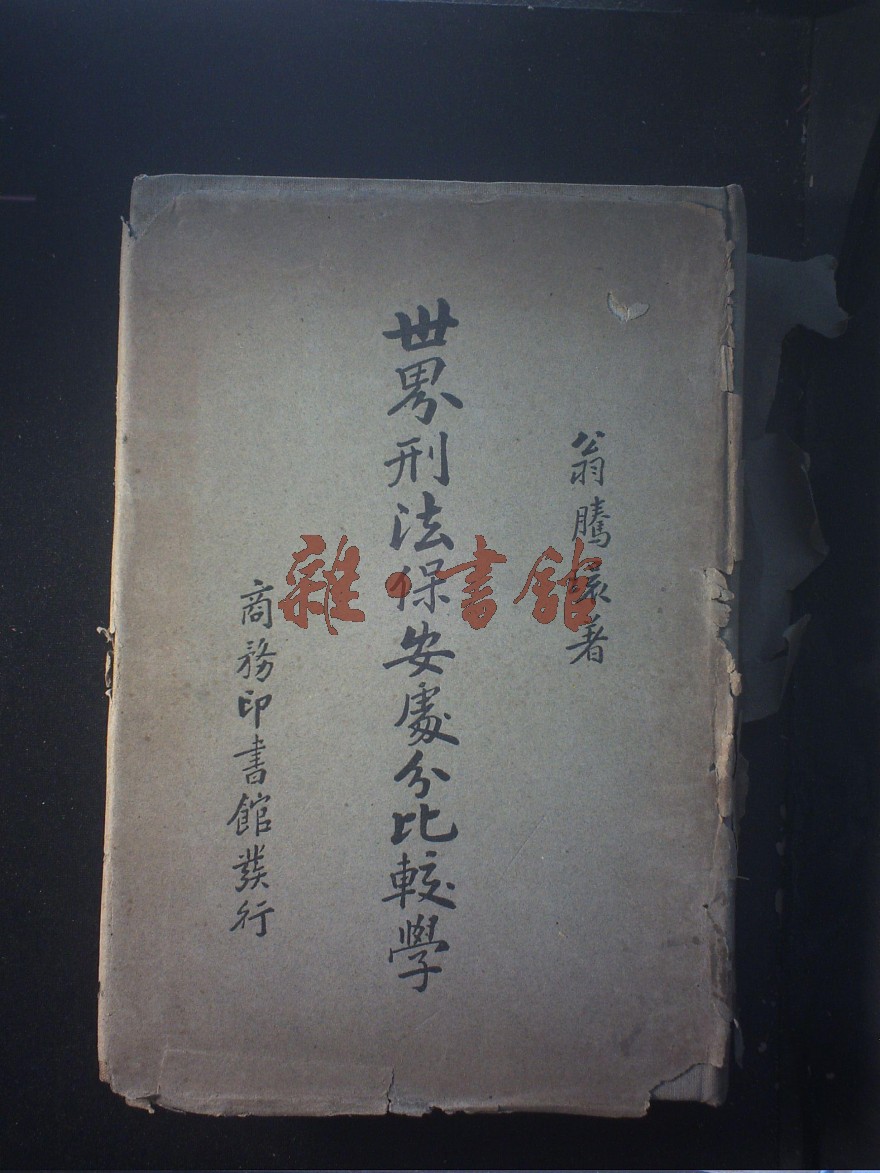 翁騰環著
世界刑法保安處分比較學
商務印書館發行
雜·書館